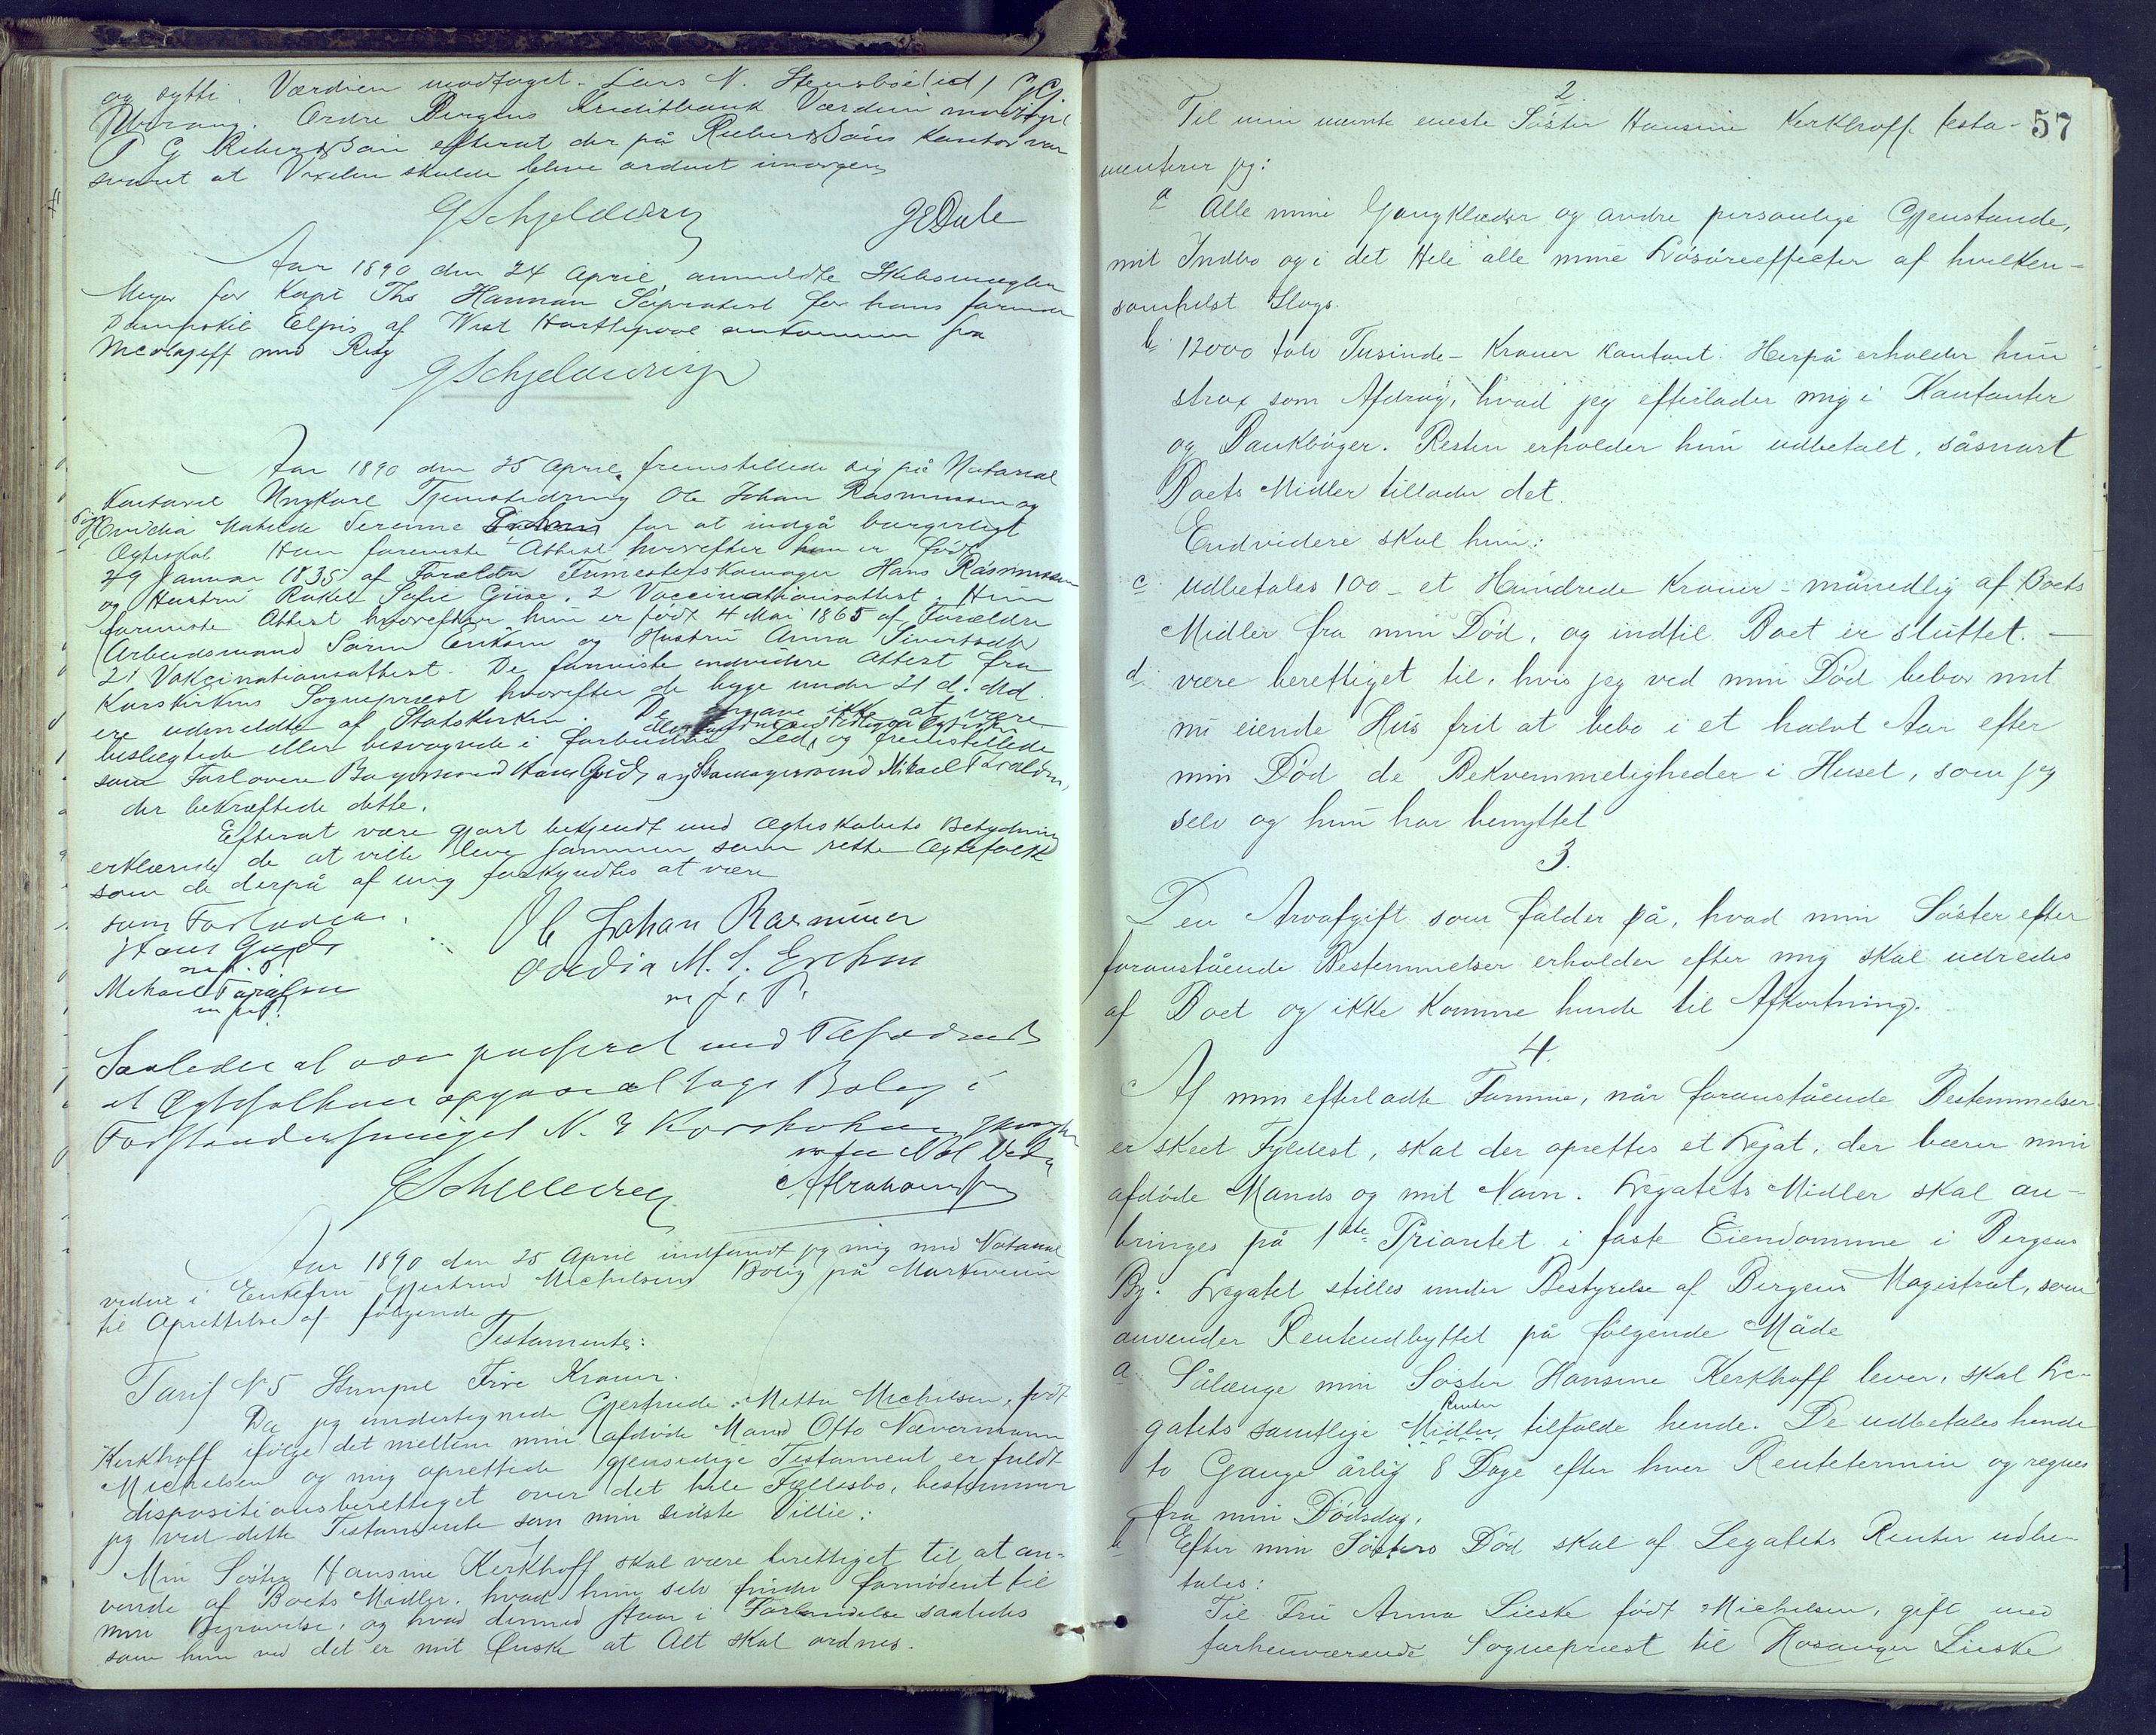 og sytti. Værdien modtaget. Lars N. Stensbøe
Ordre Bergens Kreditbank Værdien modtaget
P G Rieber & Søn efterat der på Rieber & Søns Kontor var
svaret at Vexelen skulde blive ordnet imorgen
G Schjelderup
GEDale
Aar 1890 den 24 April anmeldte Skibsmægler
Meyer for Kapt Ths Hannan Søprotest for hans førende
Dampskib Elpis af West Hartlepool ankommen fra
Nicolajeff med Rug
G Schjelderup
Aar 1890 den 25 April fremstillede sig på Notarial
Kontoret Ungkarl Ole Johan Rasmussen og
Pige Ovidia Matilde Serenne for at indgå borgerligt
Ægteskab Han foreviste Attest hvorefter han er født
29 Januar 1835 af Forældre Hans Rasmussen
og Hustru Rakel Sofie Giese. 2 Vaccinationsattest. Hun
foreviste Attest hvorefter hun er født 4 Mai 1865 af Forældre
Arbeidsmand Søren Eriksen og Hustru Anna Sivertsdtr
2) Vakcinationsattest. De foreviste endvidere Attest fra
Korskirkens Sognepræst hvorefter de begge under 21 d. Md.
ere udmeldte af Statskirken. De angave ikke at være
beslægtede eller besvogrede i forbudne Led, og fremstillede
som Forlovere Bøgersvend Hans Gjeds og Skomagersvend Mikael Taraldsen,
der bekræftede dette.
Efterat være gjort bekjendt med Ægteskabets Betydning
erklærede de at ville leve sammen som rette Ægtefolk
som de derpå af mig forkyndtes at være
som Forlovere.
Ole Johan Rasmusen
Hans Gjeds
m. f. P.
Ovedia M. S. Ereksen
m. f. P.
Mikael Taralsen
m. f. P.
Saaledes at være passeret med Tilføiende
at Ægtefolkene opgave at tage Bolig i
G Schjelderup
Abrahamsen
Aar 1890 den 25 April indfandt jeg mig med Notarial
vidne i Enkefru Gjertrud Michelsens Bolig på Markeveien
til Oprettelse af følgende
Testamente:
Tarif N 5 Stempel Fire Kroner.
Da jeg undertegnede Gjertrude Metta Michelsen, født
Kerkhoff ifølge det mellem min afdøde Mand Otto Nævermann
Michelsen og mig oprettede gjensidige Testament er fuldt
dispositionsberettiget over det hele Fællesbo, bestemmer
jeg ved dette Testamente som min sidste Villie:
1
Min Søster Hansine Kerkhoff skal være berettiget til at an-
vende af Boets Midler, hvad hun selv finder fornødent til
min Begravelse, og hvad dermed staar i Forbindelse saaledes
som hun ved det er mit Ønske at Alt skal ordnes.
57
2.
Til min nævnte eneste Søster Hansine Kerkhoff testa-
menterer jeg:
a Alle mine Gangklæder og andre personlige Gjenstande,
mit Indbo og i det Hele alle mine Løsøreeffecter af hvilken-
somhelst Slags.
b. 12000 tolv Tusinde - Kroner kontant. Herpå erholder hun
strax som Afdrag, hvad jeg efterlader mig i Kontanter
og Bankbøger. Resten erholder hun udbetalt, såsnart
Boets Midler tillader det.
Endvidere skal hun:
c udbetales 100 - et Hundrede Kroner - månedlig af Boets
Midler fra min Død, og indtil Boet er sluttet. —
d. være berettiget til, hvis jeg ved min Død bebor mit
nu eiende Hus frit at bebo i et halvt Aar efter
min Død de Bekvemmeligheder i Huset, som jeg
selv og hun har benyttet
3.
Den Arveafgift som falder på, hvad min Søster efter
foranstående Bestemmelser erholder efter mig skal udredes
af Boet og ikke komme hende til Afkortning.
4.
Af min efterladte Formue, når foranstående Bestemmelser
er skeet Fyldest, skal der oprettes et Legat, der bærer min
afdøde Mands og mit Navn. Legatets Midler skal an-
bringes på 1ste Prioritet i faste Eiendomme i Bergens
By. Legatet stilles under Bestyrelse af Bergens Magistrat, som
anvender Renteudbyttet på følgende Måde
a. Sålænge min Søster Hansine Kerkhoff lever, skal Le-
Renter
gatets samtlige Midler, tilfalde hende. De udbetales hende
to Gange årlig 8 Dage efter hver Rentetermin og regnes
fra min Dødsdag.
b Efter min Søsters Død skal af Legatets Renter udbe-
tales:
Til Fru Anna Lieske født Michelsen, gift med
forhenværende Sognepræst til Hosanger Lieske